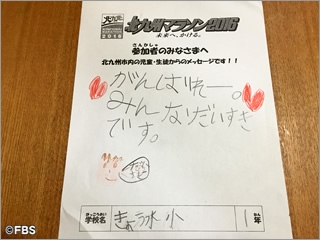 北九州マラソン2016
未来へ、かける。
さんかしゃ
参加者のみなさまへ
北九州市内の児童・生徒からのメッセージです!!
がんばれー。
みんなだいすき
です。
がっこうめい
学校名
小
1
ねん
年
©FBS